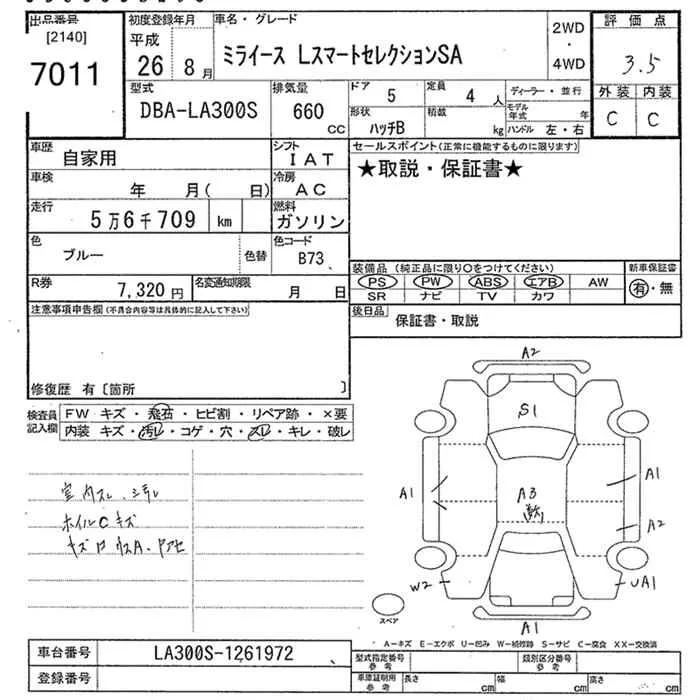 出品番号 初度登録年月 車名・グレード 2WD・4WD 評価点
[2140] 7011 平成 26 8月 ミライース LスマートセレクションSA 3.5
型式 排気量 ドア 5 定員 4人 ディーラー・並行 外装 内装
DBA-LA300S 660 CC 形状 ハッチB 積載 kg モデル年式 年 ハンドル 左・右 C C
車歴 自家用 シフト IAT セールスポイント(正常に機能するものに限ります)
車検 年 月( 日) 冷房 AC ★取説・保証書★
走行 5万6千709 km 燃料 ガソリン
色 ブルー 色替 色コード B73
装備品(純正品に限り○をつけてください) 新車保証書
R券 7,320円 名変通知期限 月 日 PS PW ABS エアB AW 有・無
SR ナビ TV カワ
注意事項申告欄(不具合内容等は具体的に記入して下さい) 後日品 保証書・取説
修復歴 有〔箇所 〕
検査員記入欄 FW キズ・飛石・ヒビ割・リペア跡・×要
内装 キズ・汚レ・コゲ・穴・スレ・キレ・破レ
A2
S1
A1 A3 A1
A2
室内スレ、シミ
ホイルCキズ
W2 UA1
スペア A1
A-キズ E-エクボ U-凹み W-補修跡 S-サビ C-腐食 XX-交換済
車台番号 LA300S-1261972 型式指定番号 参考 類別区分番号 参考
登録番号 車庫証明用 参考 長さ cm 幅 cm 高さ cm